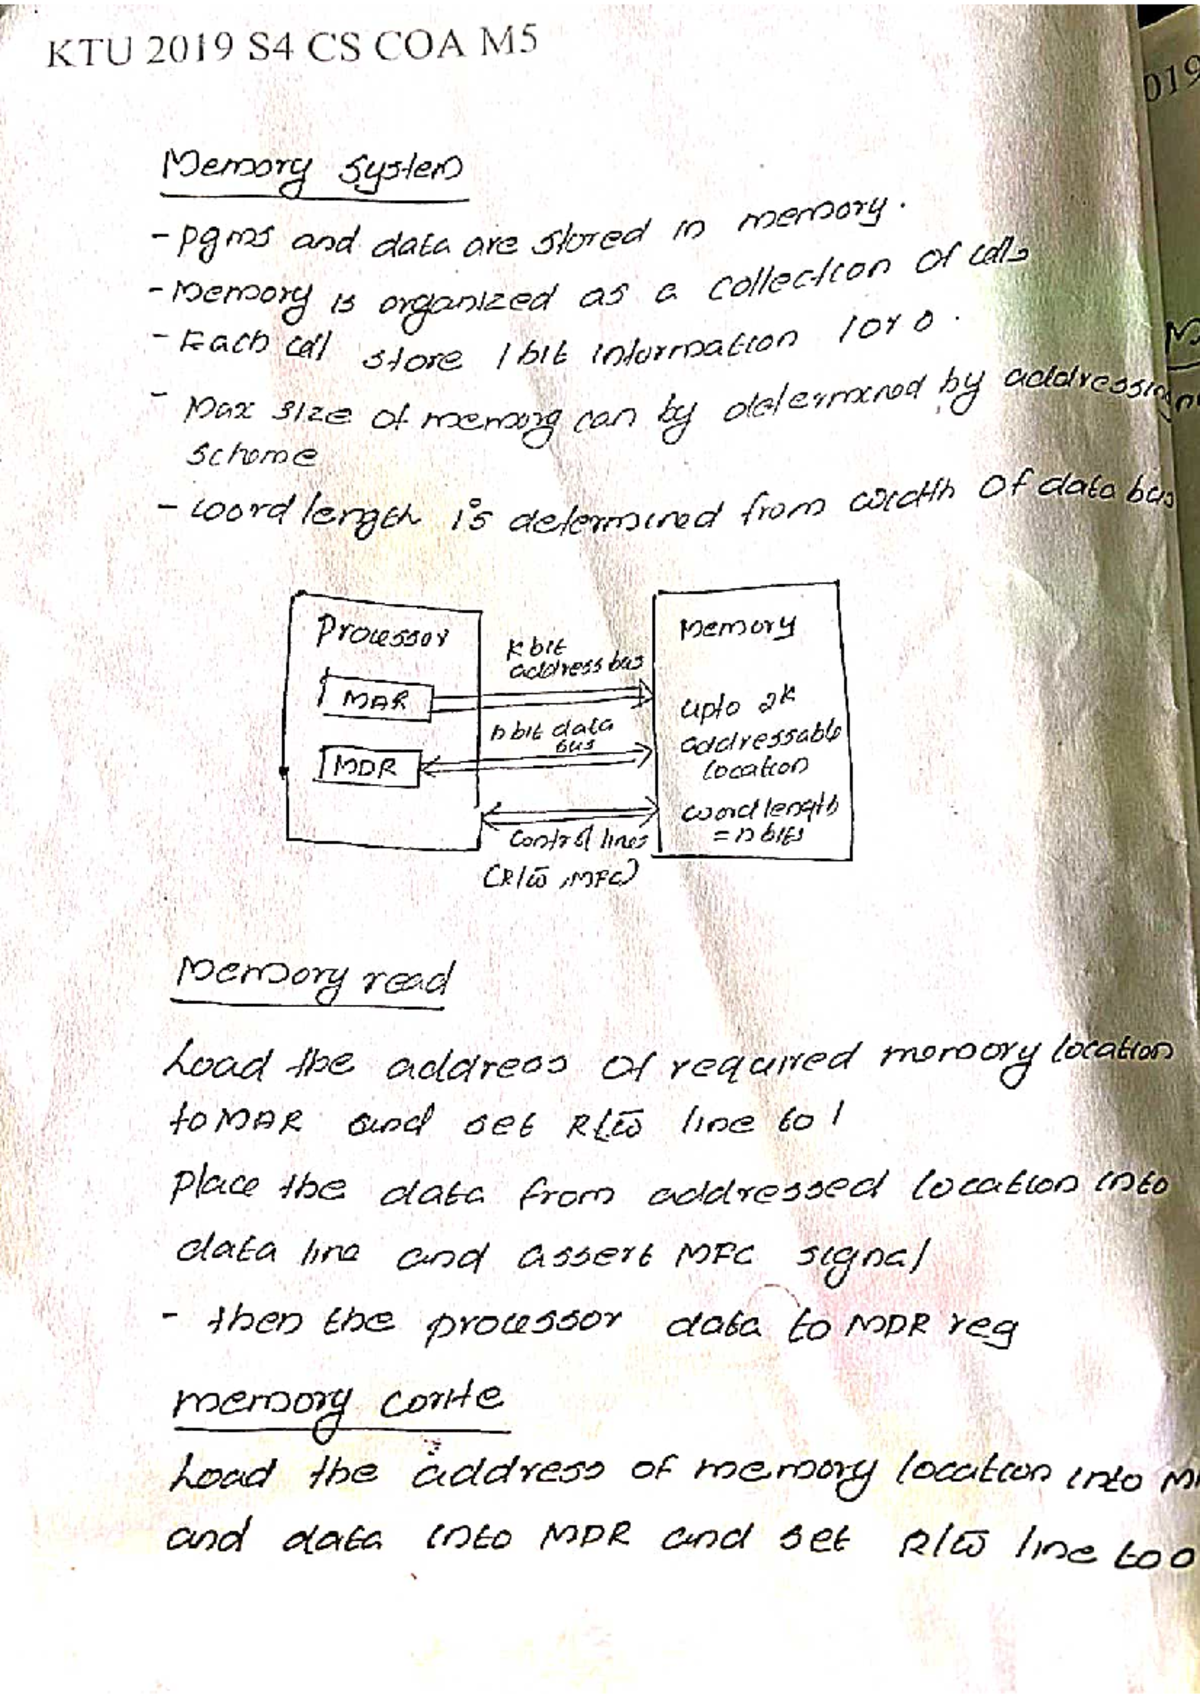 KTU 2019 S4 CS COA M5
019
Memory System
- pgms and data are stored in memory.
- Memory is organized as a collection of cells
- Each cell store 1 bit information 1 or 0.
- Max size of memory can by determined by addressing
scheme
- word length is determined from width of data bus
Processor
MAR
MDR
K bit
address bus
n bit data
bus
Control lines
(R/W̅, MFC)
Memory
upto 2ᵏ
addressable
location
word length
= n bits
Memory read
Load the address of required memory location
to MAR and set R/W̅ line to 1
place the data from addressed location into
data line and assert MFC signal
- then the processor data to MDR reg
memory write
Load the address of memory location into
and data into MDR and set R/W̅ line to 0